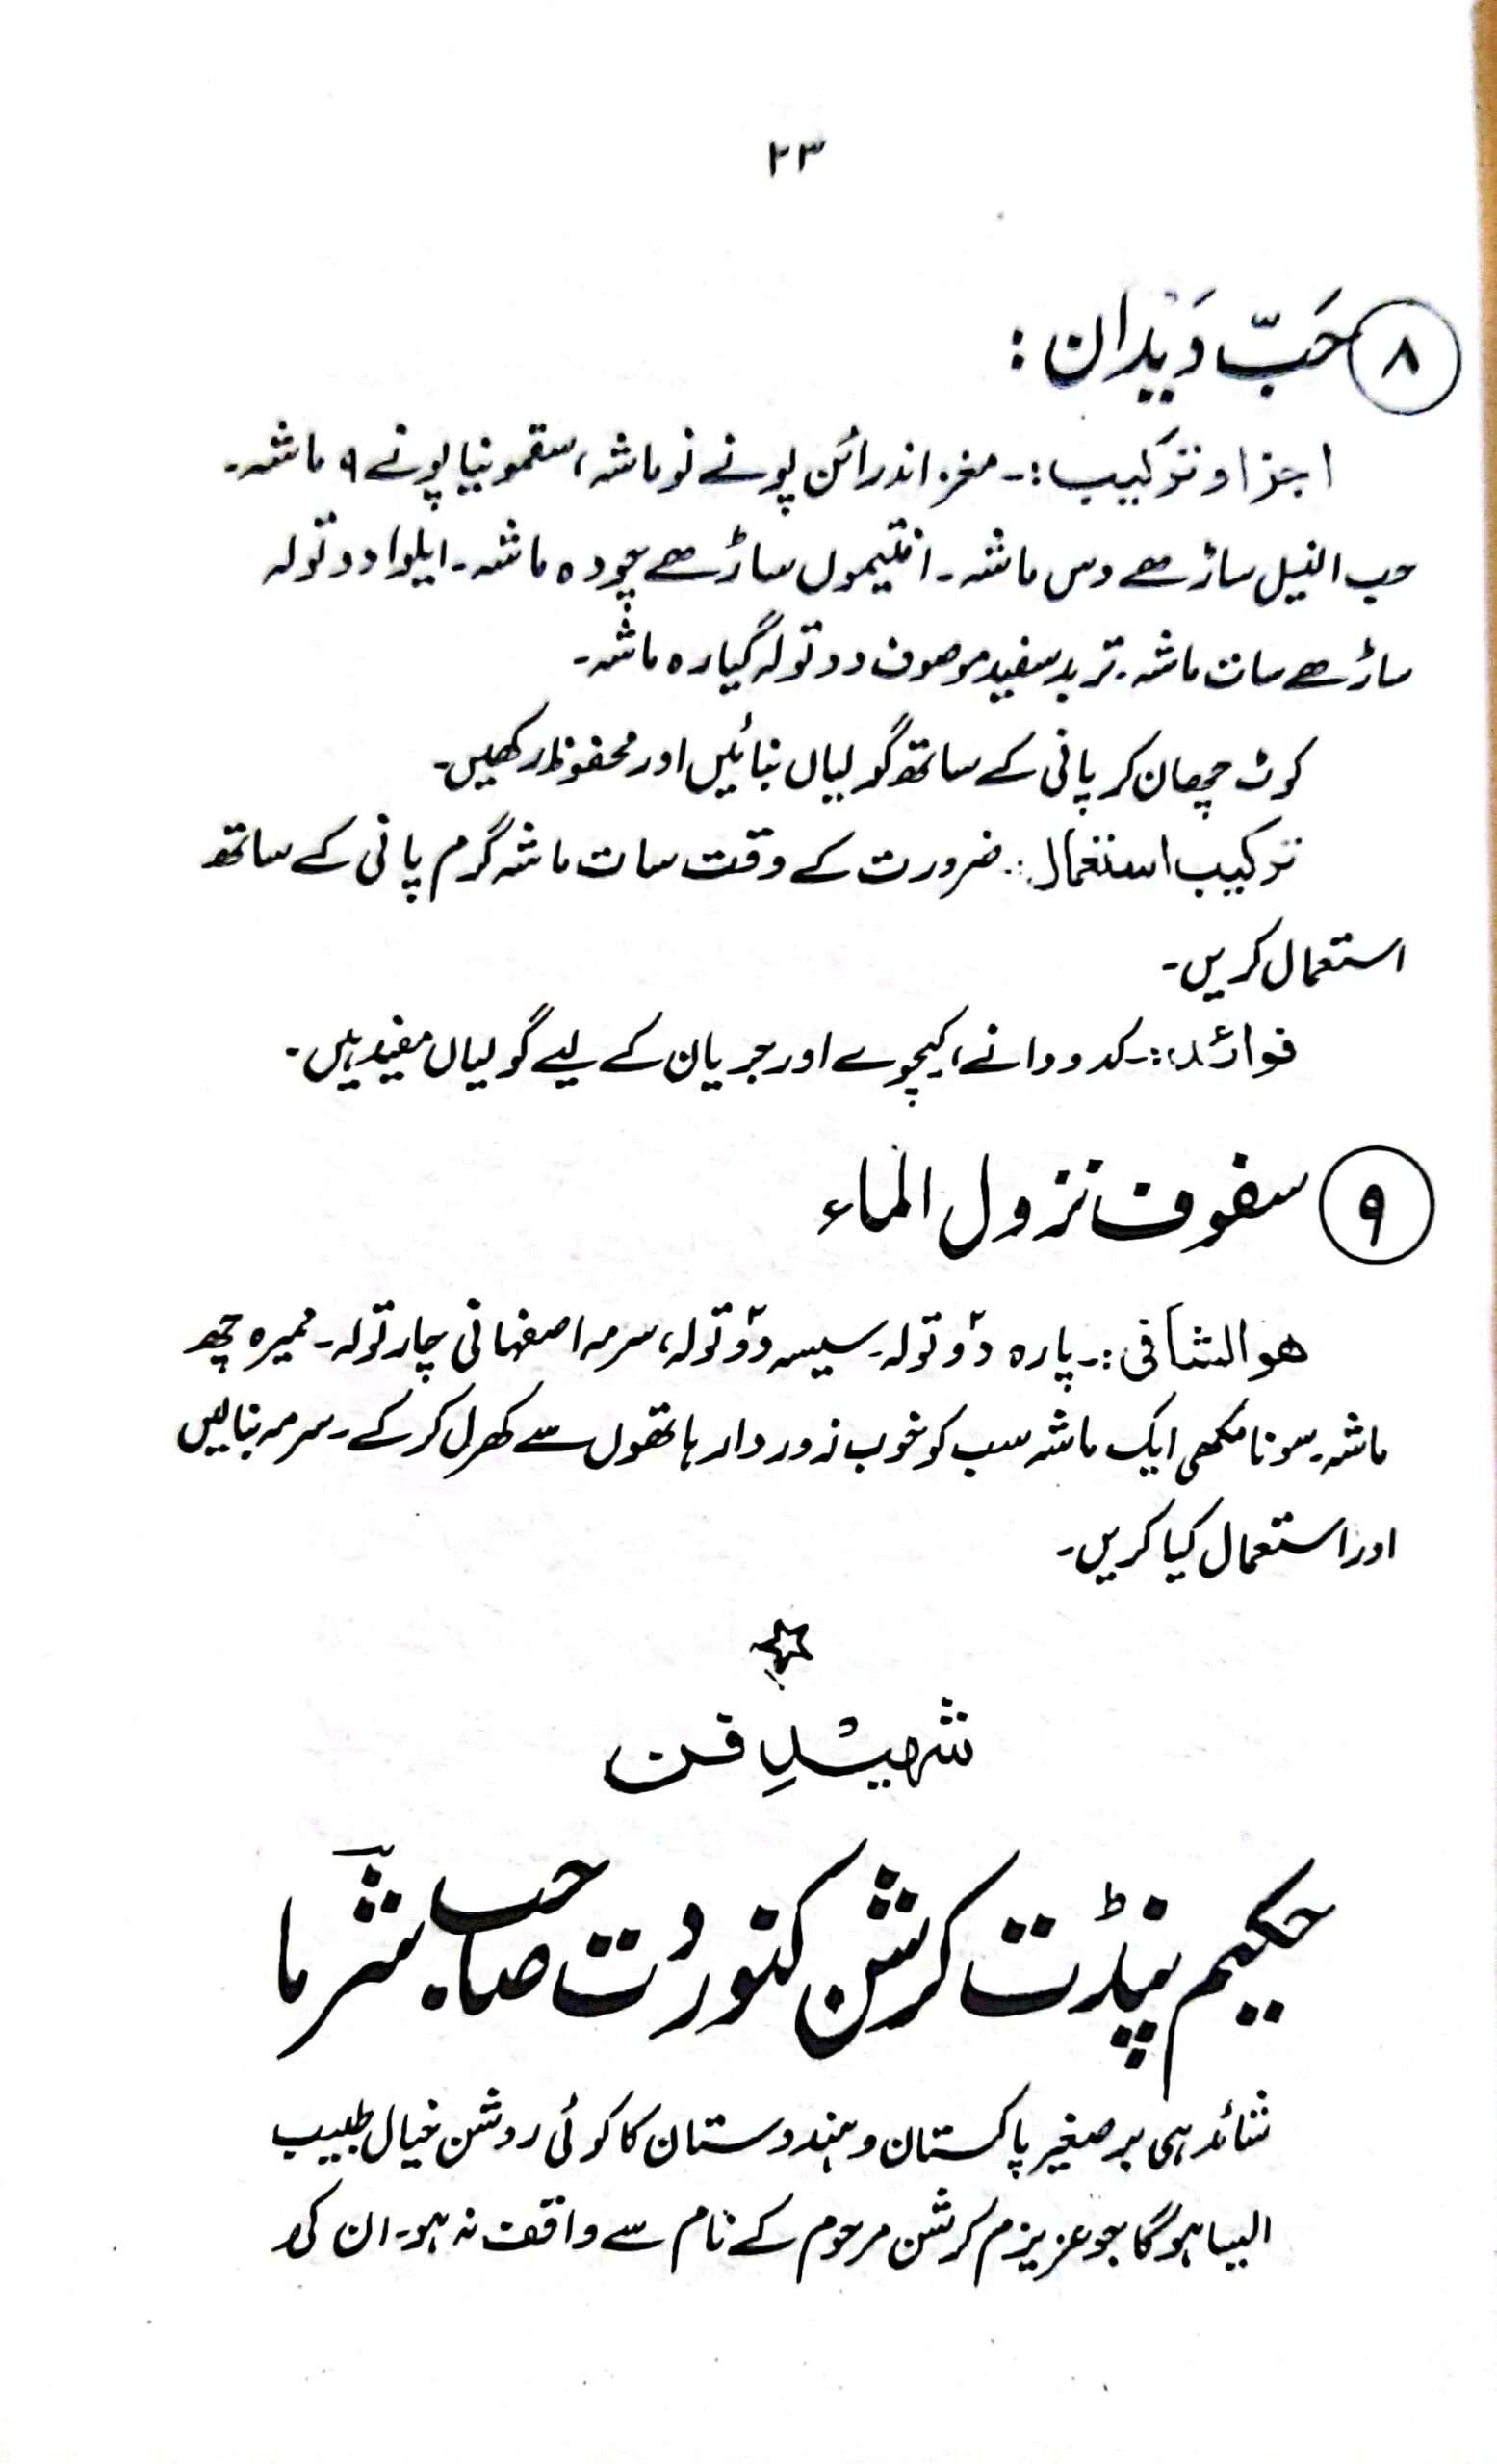 ۲۳
۸ حَبّ دَیدَان :
اجزا و ترکیب :۔ مغز اندرائن پونے نو ماشہ، سقمونیا پونے ۹ ماشہ۔
حب النیل ساڑھے دس ماشہ۔ افتیمول ساڑھے چودہ ماشہ۔ ایلوا دو تولہ
ساڑھے سات ماشہ۔ تربد سفید موصوف دو تولہ گیارہ ماشہ۔
کوٹ چھان کر پانی کے ساتھ گولیاں بنائیں اور محفوظ رکھیں۔
ترکیب استعمال :۔ ضرورت کے وقت سات ماشہ گرم پانی کے ساتھ
استعمال کریں۔
فوائد :۔ کدو دانے، کیچوے اور جریان کے لیے گولیاں مفید ہیں۔
۹ سفوف نزول الماء
ھوالشافی :۔ پارہ دو تولہ۔ سیسہ دو تولہ، سرمہ اصفہانی چار تولہ۔ ممیرہ چھ
ماشہ۔ سونا مکھی ایک ماشہ سب کو خوب زوردار ہاتھوں سے کھرل کر کے۔ سرمہ بنالیں
اور استعمال کیا کریں۔
شہیدِ فن
حکیم پنڈت کرشن کنور دت صاحب شرما
شائد ہی برصغیر پاکستان و ہندوستان کا کوئی روشن خیال طبیب
ایسا ہوگا جو عزیزم کرشن مرحوم کے نام سے واقف نہ ہو۔ ان کی